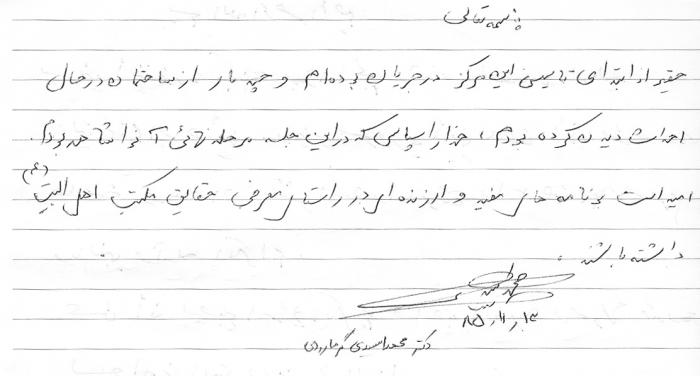 بسمه تعالی
حقیر از ابتدای تاسیس این مرکز در جریان بوده‌ام و چند بار از ساختمان در حال
احداث دیدن کرده بودم، خدا را سپاس که در این جلسه مرحله نهائی آنرا شاهد بودم.
امید است برنامه های مفید و ارزنده ای در راستای معرفی حقایق مکتب اهل البیت (ع)
داشته باشند.
دکتر محمد اسعدی گرمارودی